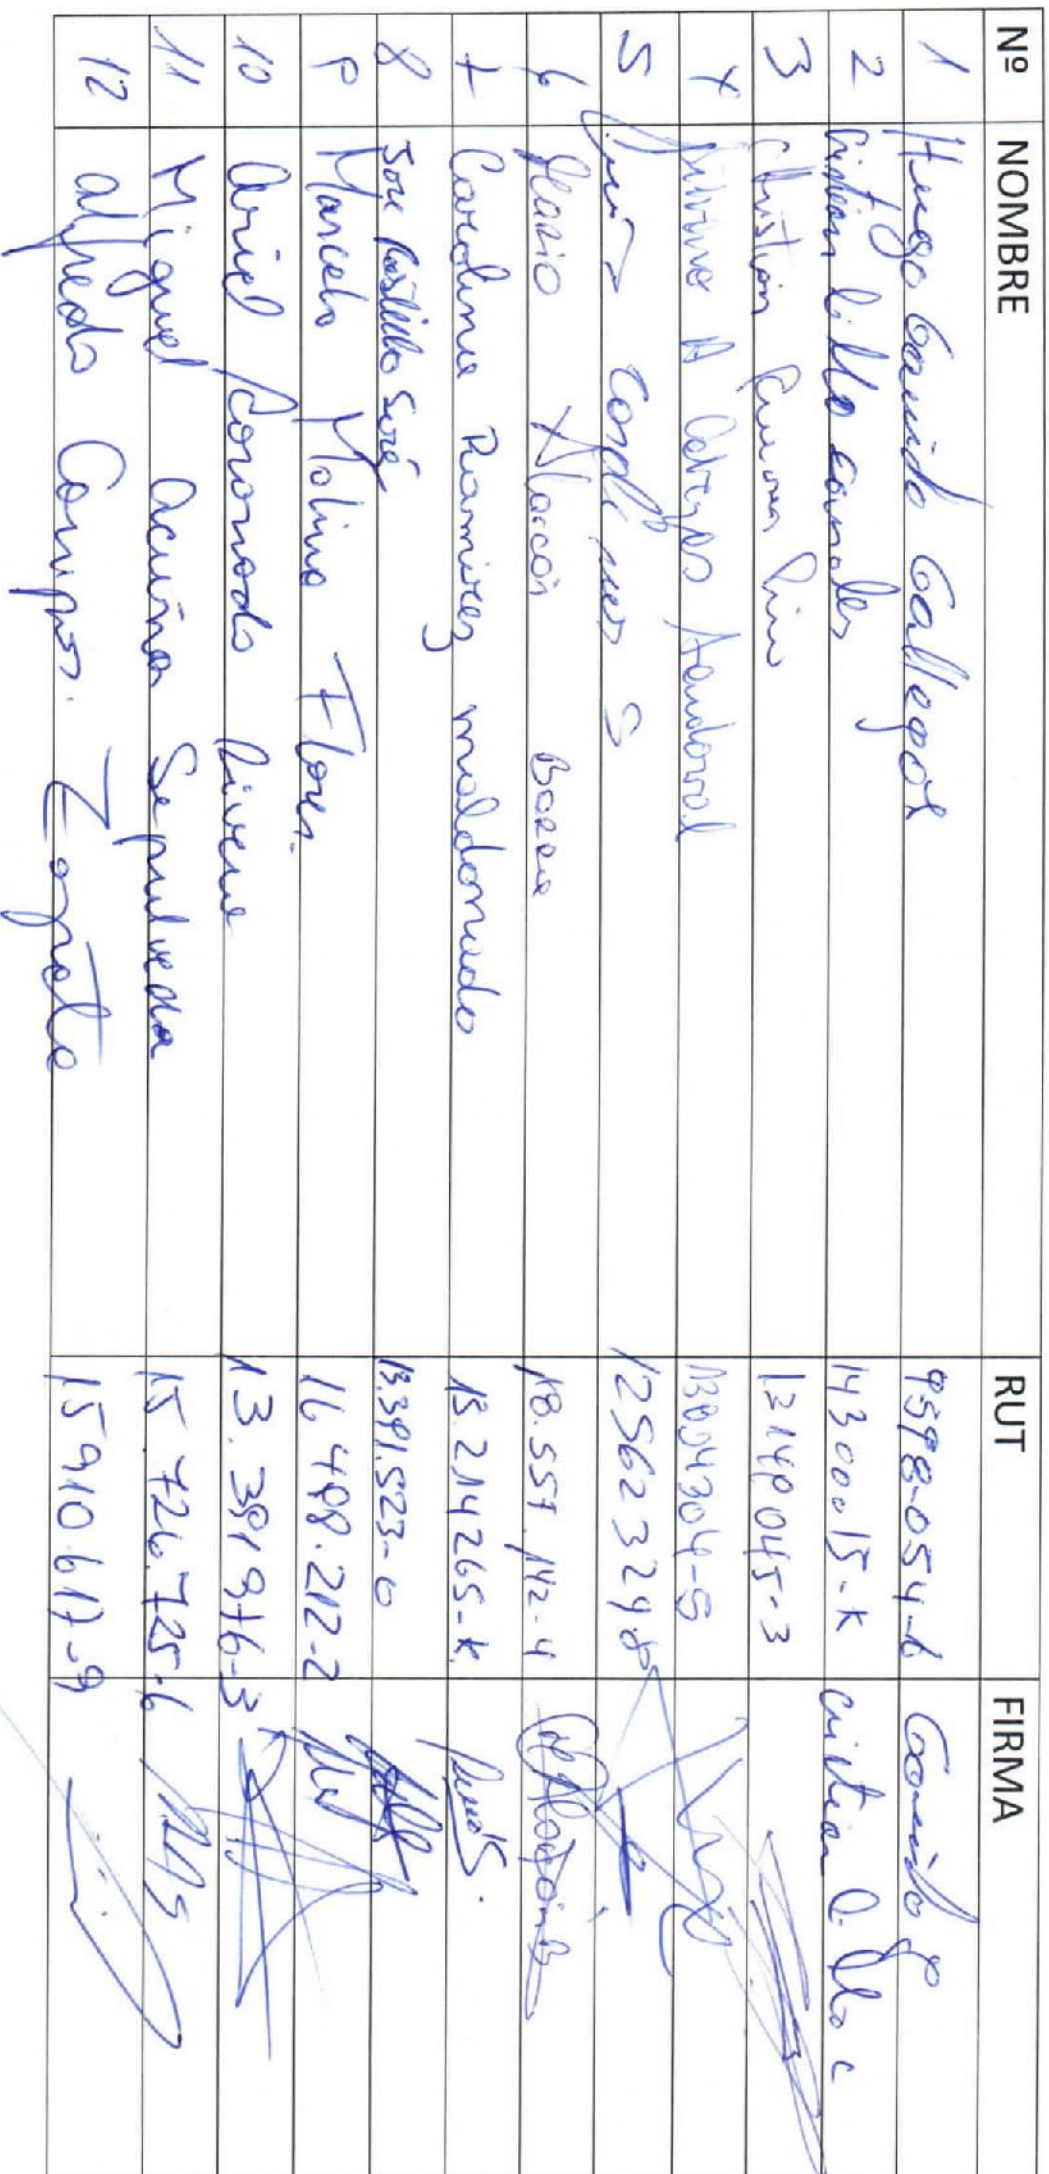 Nº NOMBRE RUT FIRMA
1 Hugo Garrido Gallegos 9598-054-6 Garrido G
2 Cristian Lillo Canales 14300015-K Cristian Lillo C
3 Christian Pino 13149045-3
4 A Sandoval 13804304-5
5 S
6 Mario Alarcón Barra 18.557.142-4
7 Carolina Ramirez maldonado 15.214265-K
8 Jose Castillo 13.391.523-0
9 Marcelo Molina Flores. 16.498.212-2
10 Ariel Coronado Rivera 13.391976-3
11 Miguel Acuña Sepulveda 15.726.725-6
12 Alfredo Campos. Zapata 15910617-9